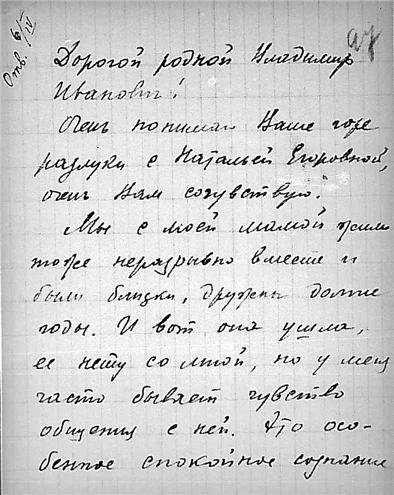 Отв. 6/IV
Дорогой родной Владимир
Иванович!
Очень понимаю Ваше горе
разлуки с Натальей Егоровной,
очень Вам сочувствую.
Мы с моей мамой жили
тоже неразрывно вместе и
были близки, дружны долгие
годы. И вот она ушла,
ее нету со мной, но у меня
часто бывает чувство
общения с ней. Это осо-
бенное спокойное сознание